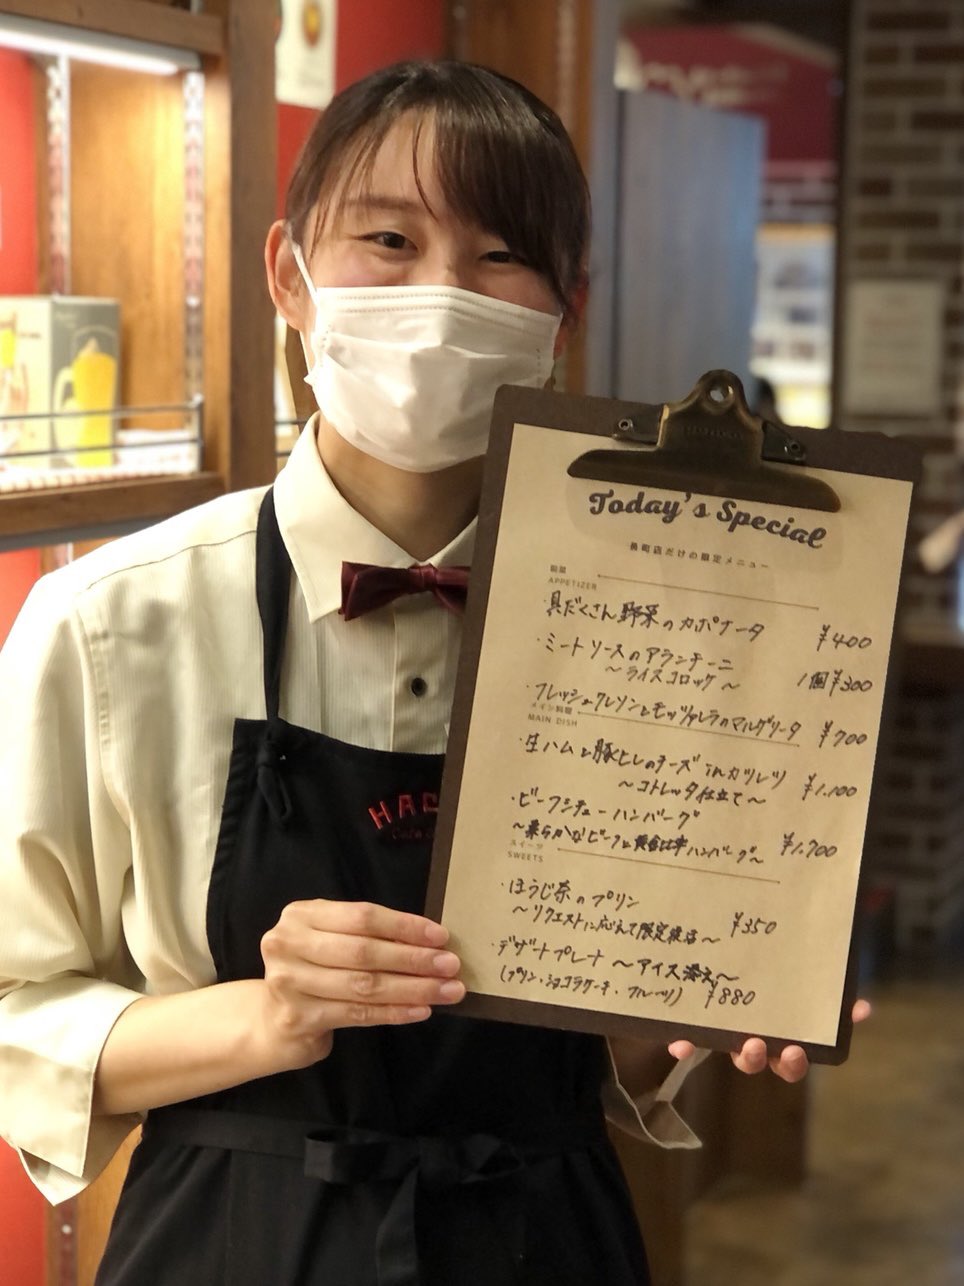 Today's Special
長町店だけの限定メニュー
前菜
APPETIZER
・具だくさん野菜のカポナータ ¥400
・ミートソースのアランチーニ 1個¥300
〜ライスコロッケ〜
・フレッシュクレソンとモッツァレラのマルゲリータ ¥700
メイン料理
MAIN DISH
・生ハムと豚ヒレのチーズinカツレツ ¥1.100
〜コトレッタ仕立て〜
・ビーフシチューハンバーグ
〜柔らかなビーフと黄金比率ハンバーグ〜 ¥1.700
スイーツ
SWEETS
・ほうじ茶のプリン ¥350
〜リクエストに応えて限定復活〜
・デザートプレート 〜アイス添え〜
(プリン・ショコラケーキ・フルーツ) ¥880
HAC
Cafe